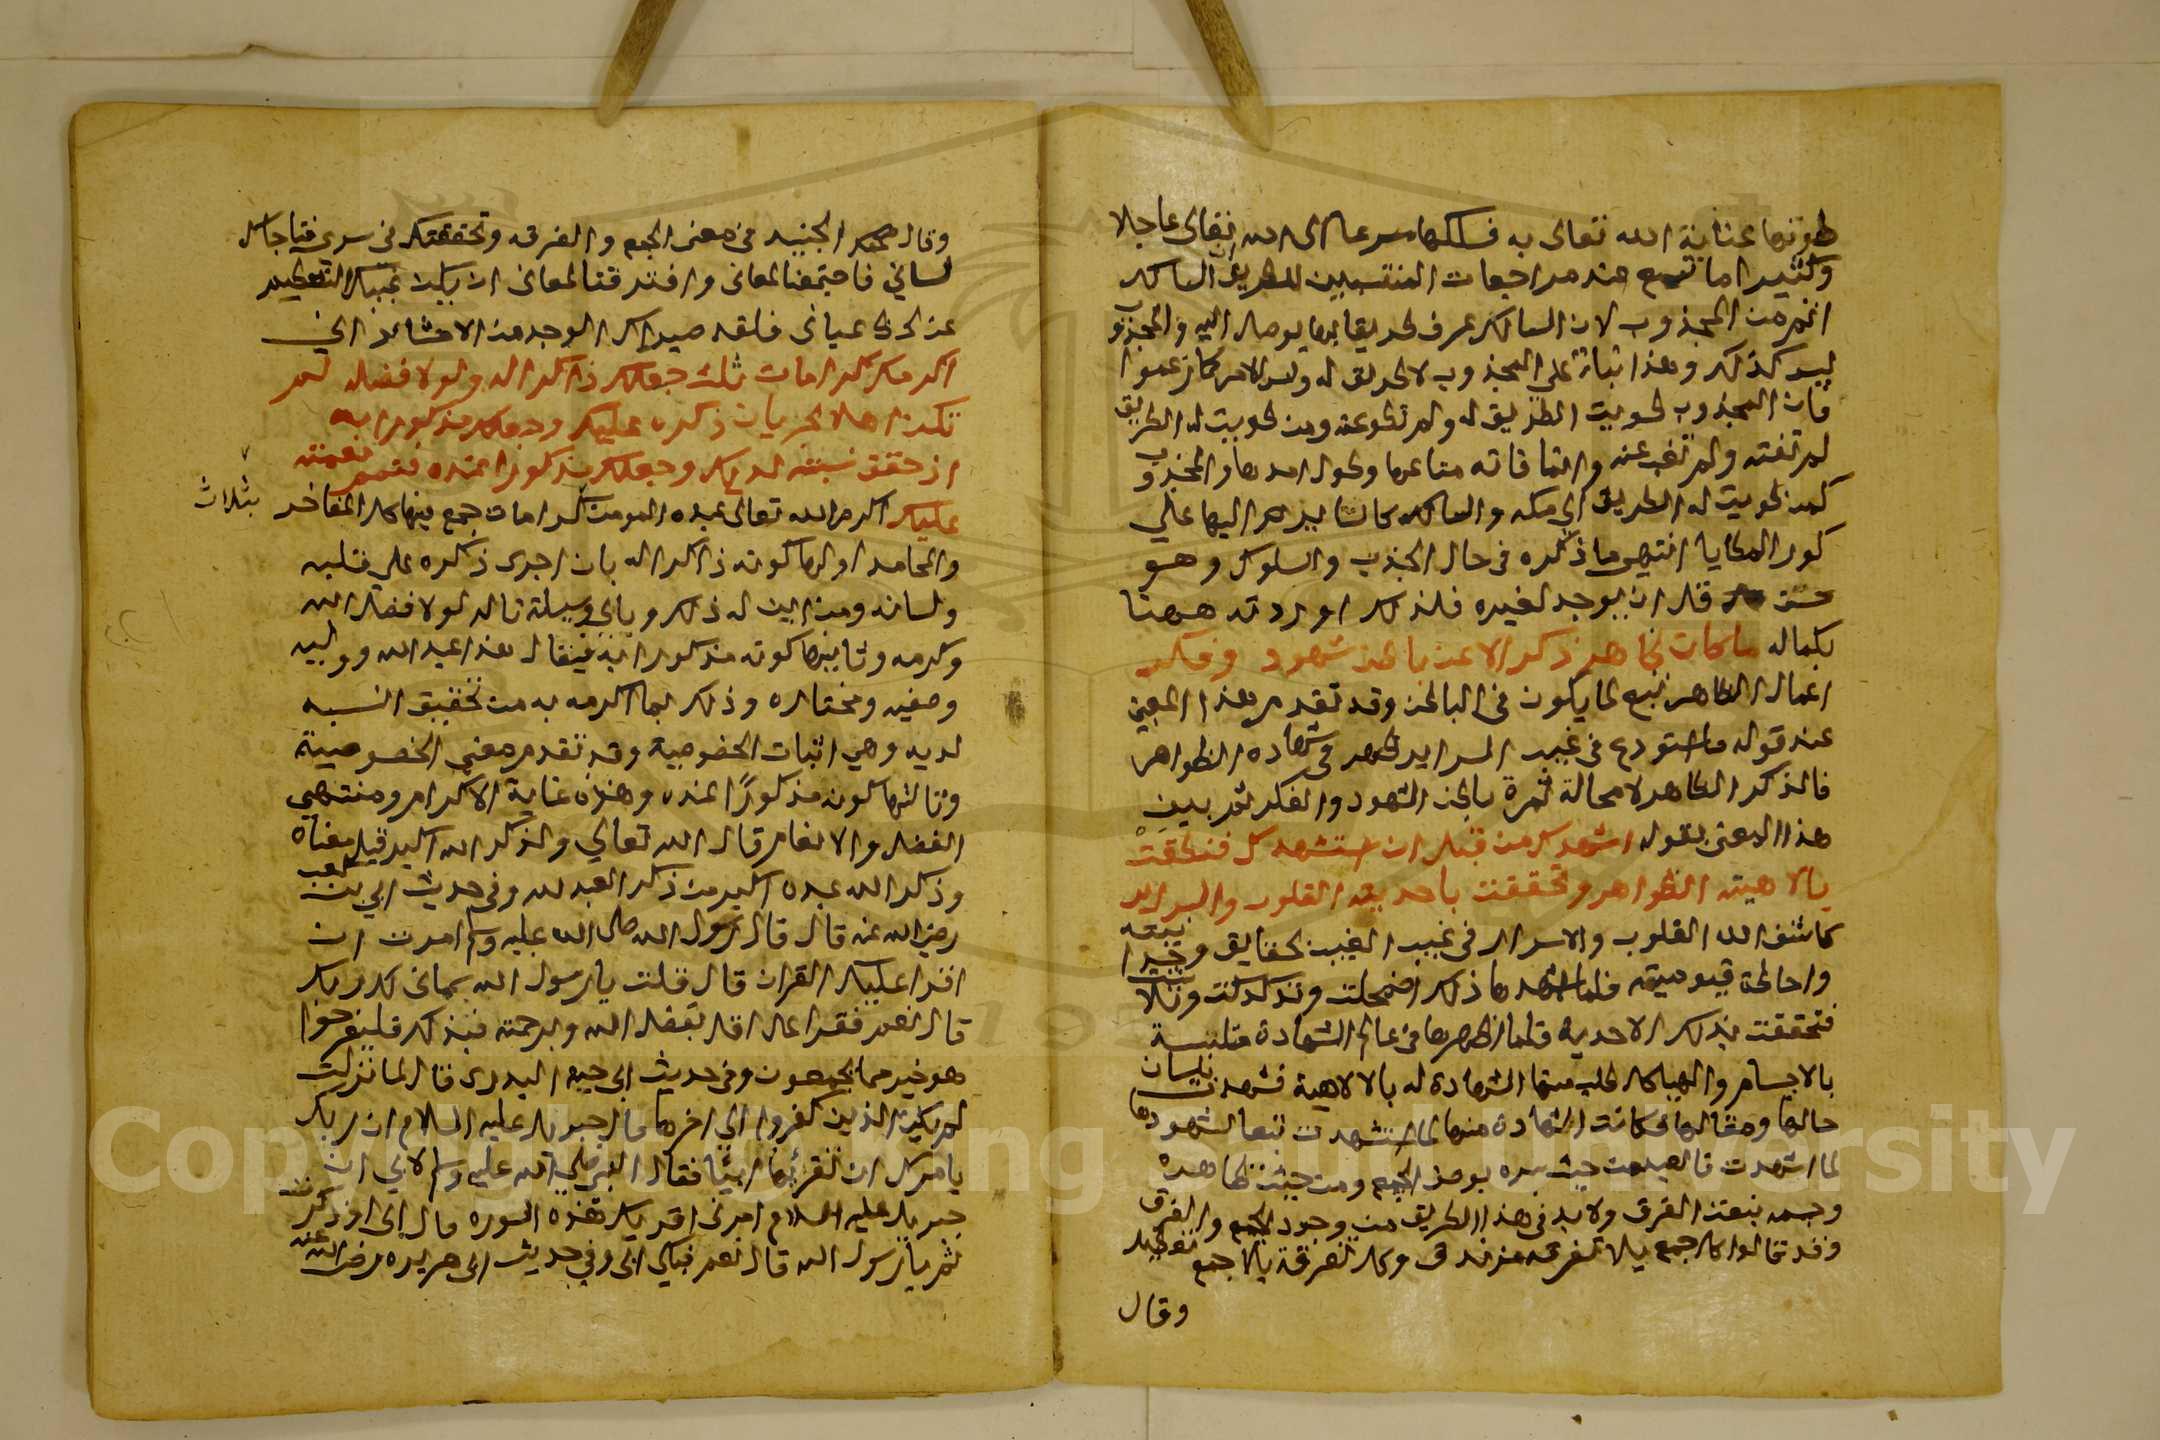 طوتها عناية الله تعالى به فسلكها مسرعا الى الله تعالى عاجلا
وكثيرا ما تسمع عند مراجعات المنتسبين للطريق ان السالك
اتم من المجذوب لان السالك عرف طريقا بها يوصل اليه والمجذوب
ليس كذلك وهذا بناء على المجذوب لا طريق له وليس الامر كما زعموا
فان المجذوب طويت الطريق له ولم تطو عنه ومن طويت له الطريق
لم تفته ولم تغب عنه وانما فاته متاعبها وطول امدها والمجذوب
كمن طويت له الطريق الى مكة والسالك كالسائر اليها على
كور المطايا انتهى ما ذكره في حال الجذب والسلوك وهو
حسن قل ان يوجد لغيره فلذلك اوردته ههنا
بكماله ما كان ظاهر ذكر الا عن باطن شهود وفكر
اعمال الظاهر تبع لما يكون في الباطن وقد تقدم هذا المعنى
عند قوله ما استودع في غيب السراير ظهر في شهادة الظواهر
فالذكر الظاهر لا محالة ثمرة باطن الشهود والفكر ثم بين
هذا المعنى بقوله اشهدك من قبل ان استشهدك فنطقت
بالاهيته الظواهر وتحققت باحديته القلوب والسراير
كاشف الله القلوب والاسرار في غيب الغيب بحقايق وحدانيته
واحاطة قيوميته فلما اشهدها ذلك اضمحلت وتدكدكت وتلاشت
فتحققت بذلك الاحدية فلما اظهرها في عالم الشهادة متلبسة
بالاجسام والهياكل طلب منها الشهادة له بالالاهية فشهدت بلسان
حالها ومقالها فكانت الشهادة منها لما استشهدت تبعا لشهودها
لما اشهدت فالعبد من حيث سره بوصف الجمع ومن حيث ظاهره
وجسمه بنعت الفرق ولا بد في هذا الطريق من وجود الجمع والفرق
وقد قالوا كل جمع بلا تفرقة زندقة وكل تفرقة بلا جمع تعطيل
وقال
وقال الجنيد في معنى الجمع والفرقة وتحققتك في سري فناجاك
لساني فاجتمعنا لمعان وافترقنا لمعان ان يكن غيبك التعظيم
عن لحظ عياني فلقد صيرك الوجد من الاحشاء داني
اكرمك كرامات ثلث جعلك ذاكرا له ولولا فضله لم
تكن اهلا لجريان ذكره عليك وجعلك مذكورا به
اذ حقق نسبته لديك وجعلك مذكورا عنده فتمم نعمته
عليك اكرم الله تعالى عبده المومن بثلاث كرامات جمع فيها كل المفاخر
والمحامد اولها كونه ذاكرا له بان اجرى ذكره على قلبه
ولسانه ومن اين له ذلك وباي وسيلة ناله لولا فضل الله
وكرمه وثانيها كونه مذكورا به فيقال هذا عبد الله ووليه
وصفيه ومختاره وذلك لما اكرمه به من تحقيق النسبة
لديه وهي اثبات الخصوصية وقد تقدم معنى الخصوصية
وثالثها كونه مذكورا عنده وهذه غاية الاكرام ومنتهى
الفضل والانعام قال الله تعالى ولذكر الله اكبر قيل معناه
وذكر الله عبده اكبر من ذكر العبد لله وفي حديث ابي بن كعب
رضي الله عنه قال قال رسول الله صلى الله عليه وسلم امرت ان
اقرا عليك القران قال قلت يا رسول الله سماني لك ربك
قال نعم فقرا على قل بفضل الله وبرحمته فبذلك فليفرحوا
هو خير مما يجمعون وفي حديث ابي حبة البدرى قال لما نزلت
لم يكن الذين كفروا الى اخرها قال جبريل عليه السلام ان ربك
يامرك ان تقرئها ابيا فقال النبي صلى الله عليه وسلم لابي ان
جبريل عليه السلام امرني اقريك هذه السورة قال ابي او ذكرت
ثم يا رسول الله قال نعم فبكى ابي وفي حديث ابي هريرة رضي الله عنه